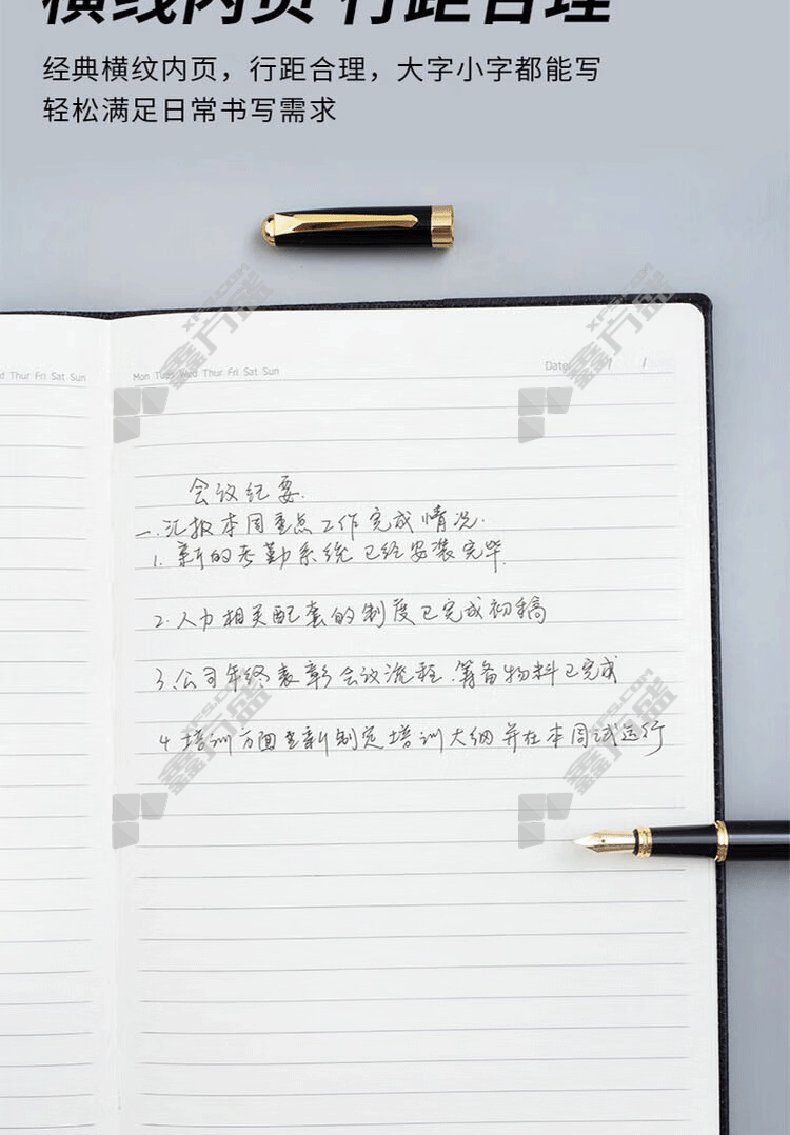 横线内页 行距合理
经典横纹内页，行距合理，大字小字都能写
轻松满足日常书写需求
d Thur Fri Sat Sun
Mon Tues Wed Thur Fri Sat Sun
Date: / /
会议纪要.
一.汇报本周重点工作完成情况.
1.新的考勤系统已经安装完毕.
2.人力相关配套的制度已完成初稿
3.公司年终表彰会议流程.筹备物料已完成
4.培训方面重新制定培训大纲并在本周试运行
鑫方盛
XFS.COM
鑫方盛
XFS.COM
鑫方盛
XFS.COM
鑫方盛
XFS.COM